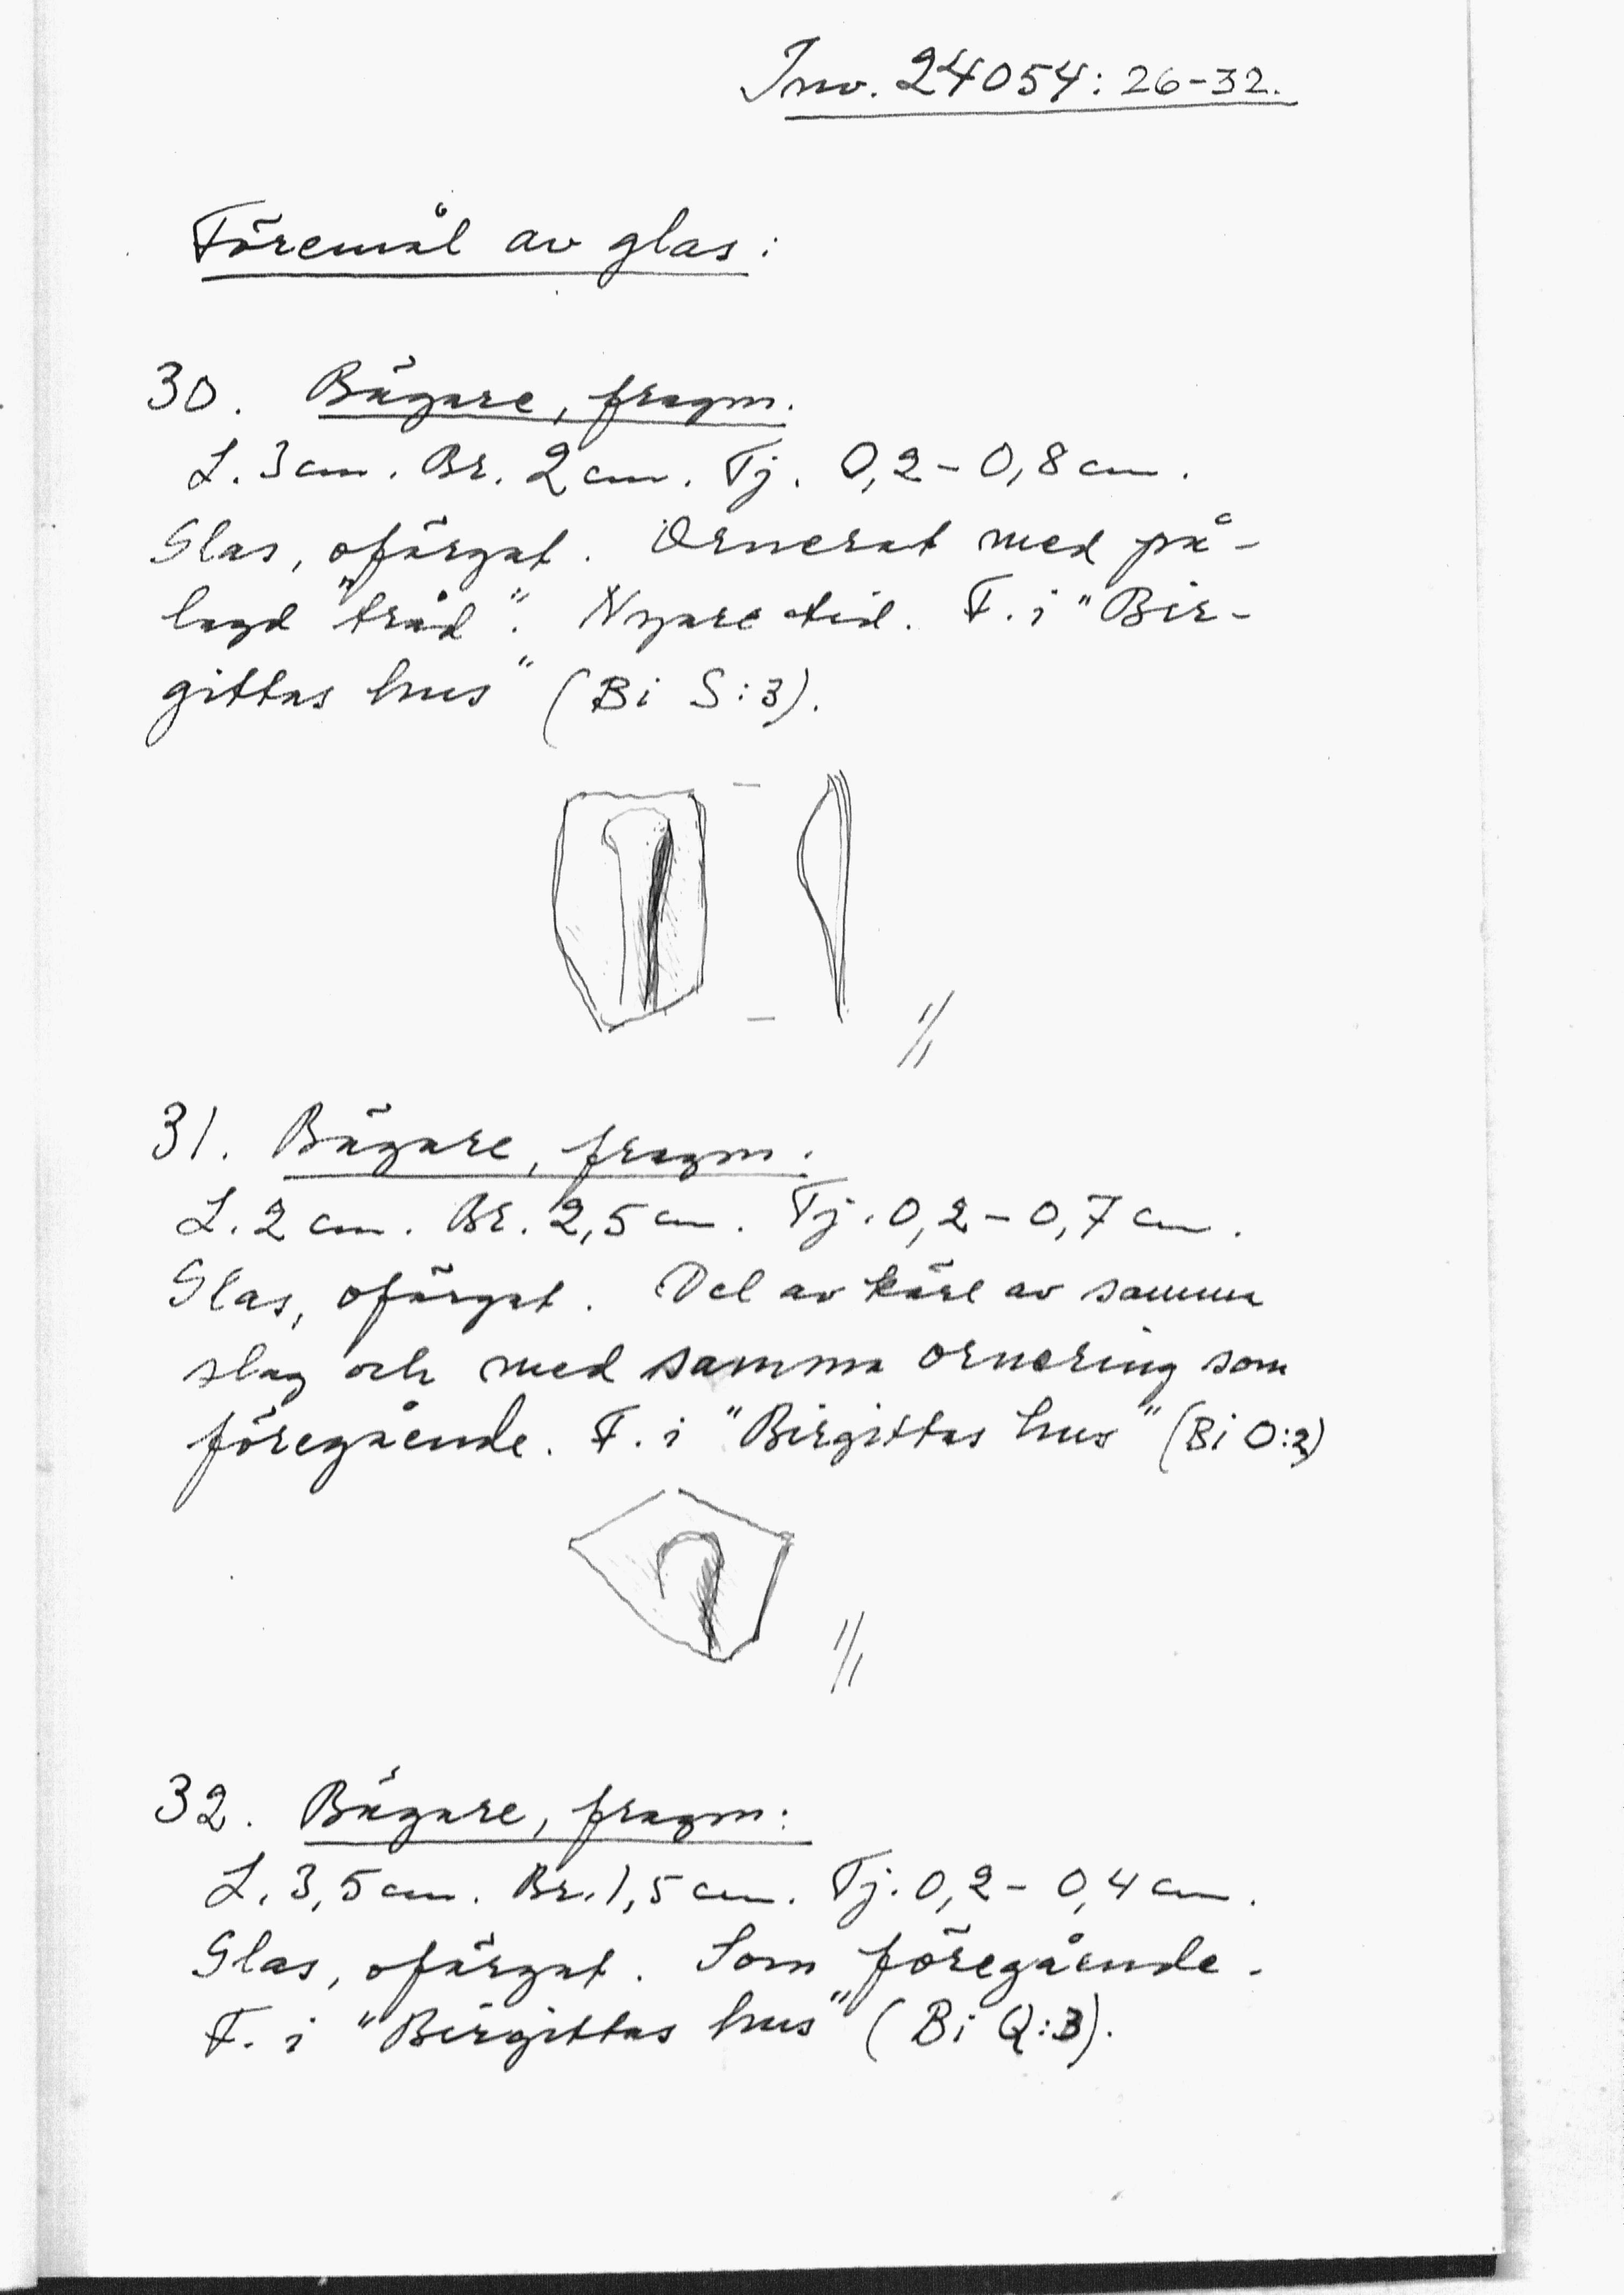 Inv. 24054: 26-32.
Föremål av glas:
30. Bägare, fragm.
L. 3 cm. Br. 2 cm. Tj. 0,2-0,8 cm.
Glas, ofärgat. Ornerat med på-
lagd "tråd". Nyare tid. F. i "Bir-
gittas hus" (Bi S:3).
1/1
31. Bägare, fragm.
L. 2 cm. Br. 2,5 cm. Tj. 0,2-0,7 cm.
Glas, ofärgat. Del av kärl av samma
slag och med samma ornering som
föregående. F. i "Birgittas hus" (Bi O:2)
1/1
32. Bägare, fragm:
L. 3,5 cm. Br. 1,5 cm. Tj. 0,2-0,4 cm.
Glas, ofärgat. Som föregående.
F. i "Birgittas hus" (Bi Q:3).